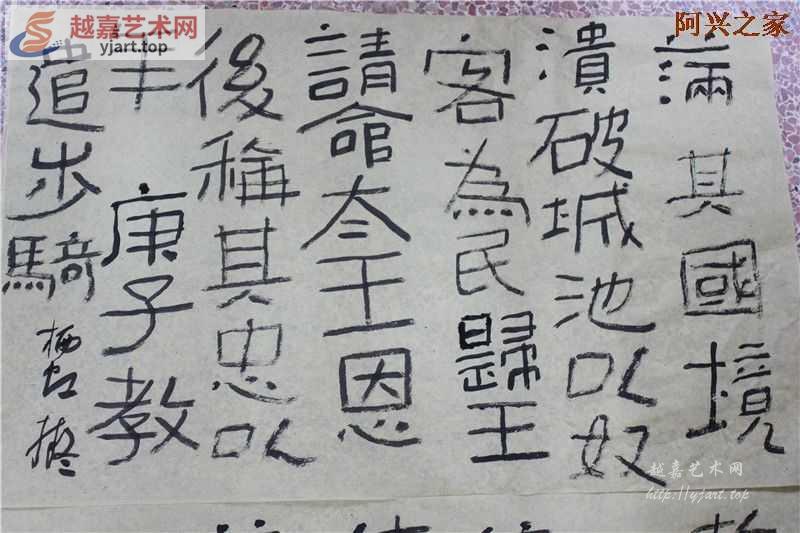 越嘉艺术网
yjart.top
阿兴之家
滿其國境
潰破城池以奴
客為民歸王
請命太王恩
後稱其忠以
年庚子教
遣步騎
越嘉艺术网
http://yjart.top